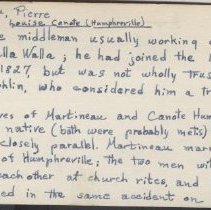 , Pierre
Louise Canote (Humphreville)
e middleman usually working
lla Walla; he had joined the
1827 but was not wholly trus
hlin, who considered him a tr
ves of Martineau and Canote Hum
native (both were probably metis)
closely parallel. Martineau mar
of Humphreville; the two men wi
each other at church rites, and
ed in the same accident on